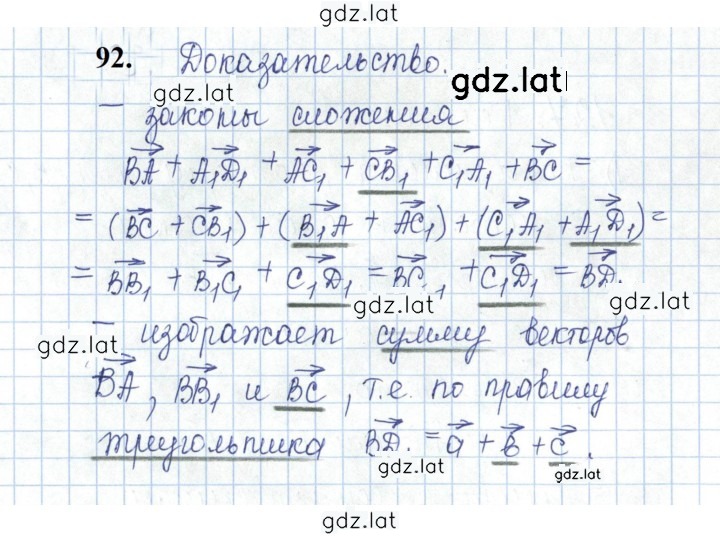 gdz.lat
92. Доказательство.
gdz.lat
gdz.lat
— законы сложения
BA + A₁D₁ + AC₁ + CB₁ + C₁A₁ + BC =
= (BC + CB₁) + (B₁A + AC₁) + (C₁A₁ + A₁D₁) =
= BB₁ + B₁C₁ + C₁D₁ = BC₁ + C₁D₁ = BD.
gdz.lat gdz.lat
— изображает сумму векторов
gdz.lat
BA, BB₁ и BC, т.е. по правилу
треугольника BD. = a + b + c.
gdz.lat gdz.lat
gdz.lat